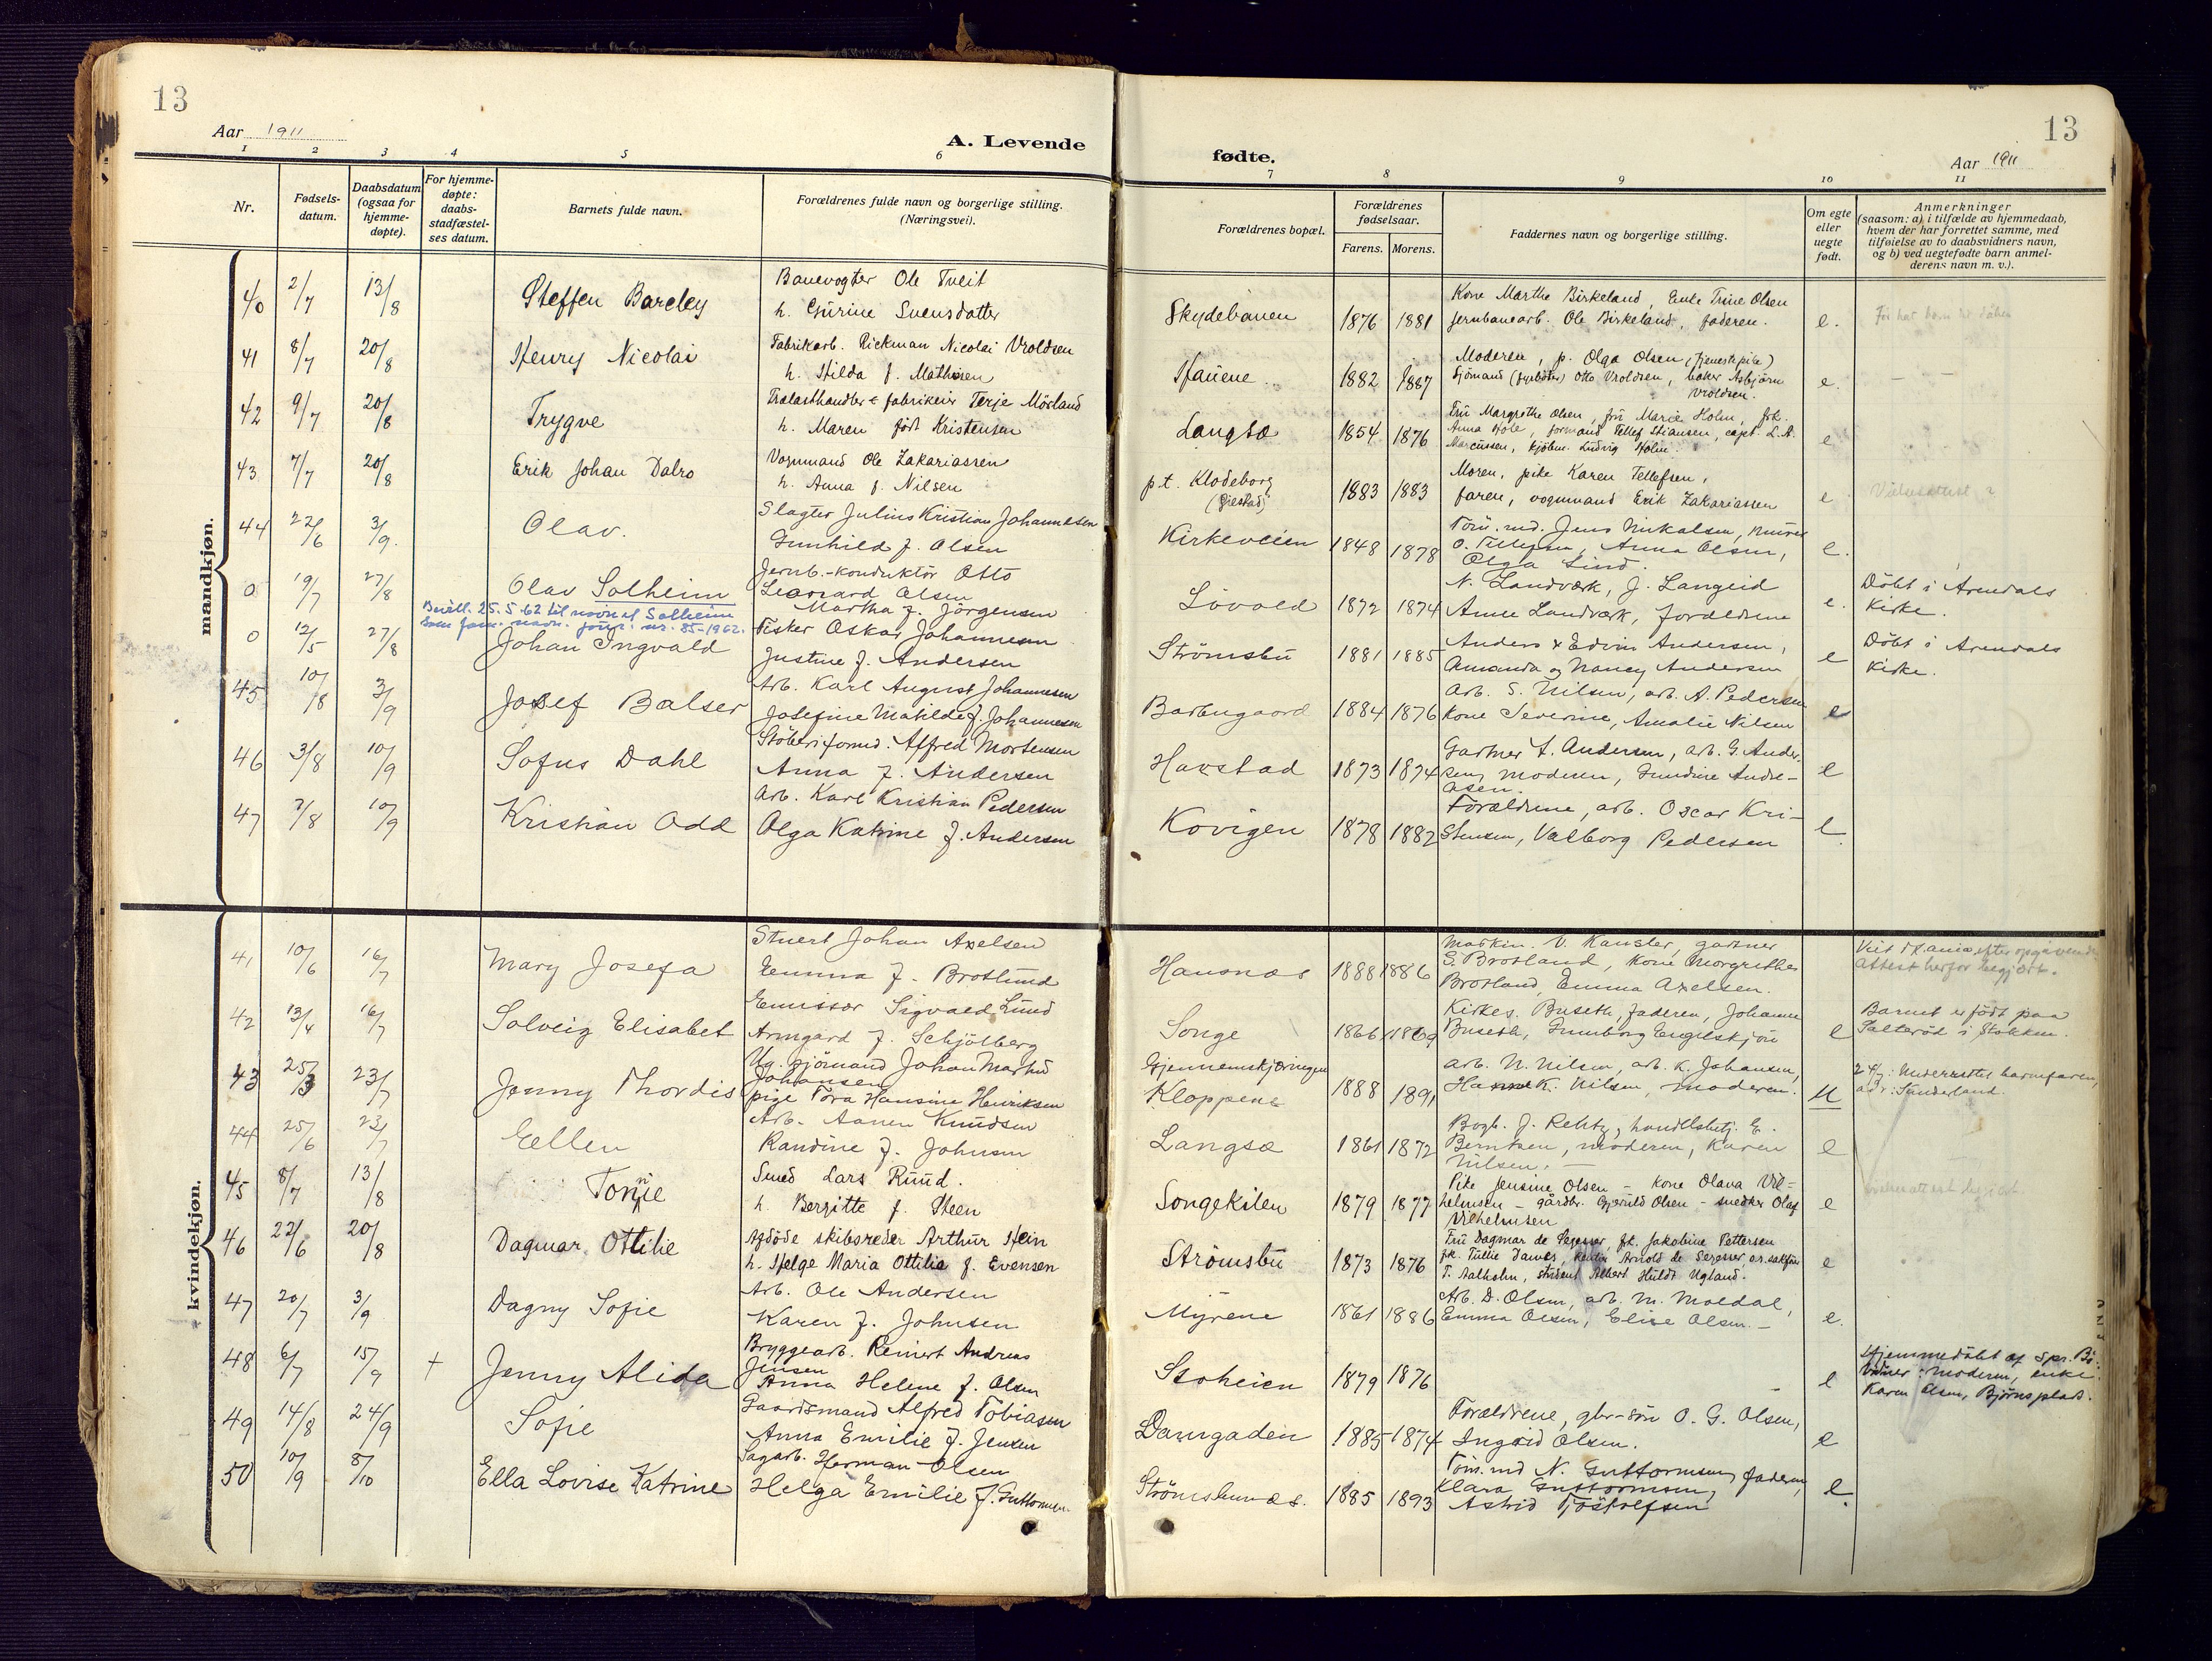 13
Aar 1911
A. Levende
1 2 3 4 5 6
Nr.
Fødsels-
datum.
Daabsdatum
(ogsaa for
hjemme-
døpte).
For hjemme-
døpte:
daabs-
stadfæstel-
ses datum.
Barnets fulde navn.
Forældrenes fulde navn og borgerlige stilling.
(Næringsvei).
mandkjøn.
40 2/7 13/8 Steffen Barclay
Banevogter Ole Tveit
h. Gurine Svensdatter
41 8/7 20/8 Henry Nicolai
Fabrikarb. Rickman Nicolai Vroldsen
h. Hilda f. Mathisen
42 9/7 20/8 Trygve
Trælasthandler & fabrikeier Terje Mörland
h. Maren födt Kristensen
43 7/7 20/8 Erik Johan Dalro
Vognmand Ole Zakariassen
h. Anna f. Nilsen
44 22/6 3/9. Olav.
Slagter Julius Kristian Johannesen
Gunhild f. Olsen
0 19/7 27/8 Olav Solheim
Jernb.-konduktör Otto
Leonard Olsen
Martha f. Jörgensen
Bevill. 25.5.62 til navnet Solheim
som fam. navn. jour. nr. 85-1962.
0 12/5 27/8 Johan Ingvald
Fisker Oskar Johannesen
Justine f. Andersen
45 10/8 3/9 Josef Balser
Arb. Karl August Johannesen
Josefine Matilde f. Johannesen
46 3/8 10/9 Sofus Dahl
Stöberiformd. Alfred Mortensen
Anna f. Andersen
47 7/8 10/9 Kristian Odd
Arb. Karl Kristian Pedersen
Olga Katrine f. Andersen
kvindekjøn.
41 10/6 16/7 Mary Josefa
Stuert Johan Axelsen
Emma f. Brotlund
42 13/4 16/7 Solveig Elisabet
Emissær Sigvald Lund
Armgard f. Schjölberg
43 25/3 23/7 Jenny Thordis
Ug. sjömand Johan Marius
Johansen
pige Tora Hansine Henriksen
44 25/6 23/7 Ellen
Arb. Aanen Knudsen
Randine f. Johnsen
45 8/7 13/8 Tonnie
Smed Lars Ruud.
h. Bergitte f. Steen
46 22/6 20/8 Dagmar Ottilie
Afdöde skibsreder Arthur Hein
h. Helge Maria Ottilie f. Evensen
47 20/7 3/9 Dagny Sofie
Arb. Ole Andersen
Karen f. Johnsen
48 6/7 15/9 + Jenny Alida
Bryggearb. Reinert Andreas
Jensen
Anna Helene f. Olsen
49 14/8 24/9 Sofie
Gaardsmand Alfred Tobiasen
Anna Emilie f. Jensen
50 10/9 8/10 Ella Lovise Katrine
Sagarb. Herman Olsen
Helga Emilie f. Guttormsen
13
fødte.
Aar 1911
7 8 9 10 11
Forældrenes bopæl.
Forældrenes
fødselsaar.
Farens. Morens.
Faddernes navn og borgerlige stilling.
Om egte
eller
uegte
født.
Anmerkninger
(saasom: a) i tilfælde av hjemmedaab,
hvem der har forrettet samme, med
tilføielse av to daabsvidners navn,
og b) ved uegtefødte barn anmel-
derens navn m. v.).
Skydebanen 1876 1881
Kone Marthe Birkeland, Enke Trine Olsen
jernbanearb. Ole Birkeland, faderen. e.
Hauene. 1882 1887
Moderen, p. Olga Olsen (tjenestepike)
Sjömand Otto Vroldsen, baker Asbjörn
Vroldsen. e.
Langsæ 1854 1876
Fru Margrethe Olsen, fru Marie Holm, frk.
Anna Hole, formand Tellef Stiansen, capt. L. A.
Marcussen, kjöbm. Ludvig Holm. e
p.t. Klodeborg 1883 1883
Moren, pike Karen Tellefsen,
faren, vognmand Erik Zakariassen e.
Kirkeveien 1848 1878
Töm. md. Jens Mikalsen, murer
O. Tellefsen, Anna Olsen,
Olga Lind. e.
Lövold 1872 1874
N. Landværk, J. Langeid
Anne Landværk, foreldrene e.
Döbt i Arendals
Kirke.
Strömsbu 1881 1885
Anders & Edvin Andersen,
Amanda og Nancy Andersen e
Döbt i Arendals
Kirke.
Barbugaard 1884 1876
Arb. S. Nilsen, arb. A. Pedersen
kone Severine, Amalie Nilsen e
Havstad 1873 1874
Gartner A. Andersen, arb. G. Ander-
sen, moderen, Gundine Andre-
asen. e
Kovigen 1878 1882
Forældrene, arb. Oscar Kri-
stensen, Valborg Pedersen e.
Hansnæs 1888 1886
Maskin. V. Kansler, gartner
S. Brotland, kone Morgrethe
Brotland, Emma Axelsen.
Songe 1866 1869
Kirkes. Buseth, faderen, Johanne
Buseth, Gunnborg Engelskjön e
Barnet er födt paa
Salteröd i Stokken.
Gjennemskjæringen
Kloppene 1888 1891
arb. N. Nilsen, arb. K. Johansen,
Hanna K. Nilsen, moderen. u
24/7: Underrettet barnefaren,
adr: Sunderland.
Langsæ 1861 1872
Bogh. J. Rehtz, handelsbetj. E.
Berntsen, moderen, Karen
Nilsen. — e
Songekilen 1879 1877
Pike Jensine Olsen – kone Olava Vil-
helmsen – gårdbr. Gjeruld Olsen – snedker Olaf
Vilhelmsen e
Strömsbu 1873 1876
Fru Dagmar de Seqesser, frk. Jakobine Pettersen
frk. Tullie Dawes, kaptein Arnold de Seqesser, or. sakfører
T. Aalholm, student Albert Huldt Ugland. e
Myrene 1861 1886
Arb. D. Olsen, arb. M. Moldal,
Emma Olsen, Elise Olsen. – e.
Stoheien 1879 1876 e
Hjemmedöbt af spr. Bö.
Vidner: Moderen, enke
Karen Olsen, Bjørnsplads.
Damgaden 1885 1874
Forældrene, gbr-sön O. G. Olsen,
Ingrid Olsen. e
Strömsbunæs. 1885 1893
Töm. md N. Guttormsen, faderen,
Klara Guttormsen,
Astrid Tjöstolfsen e.